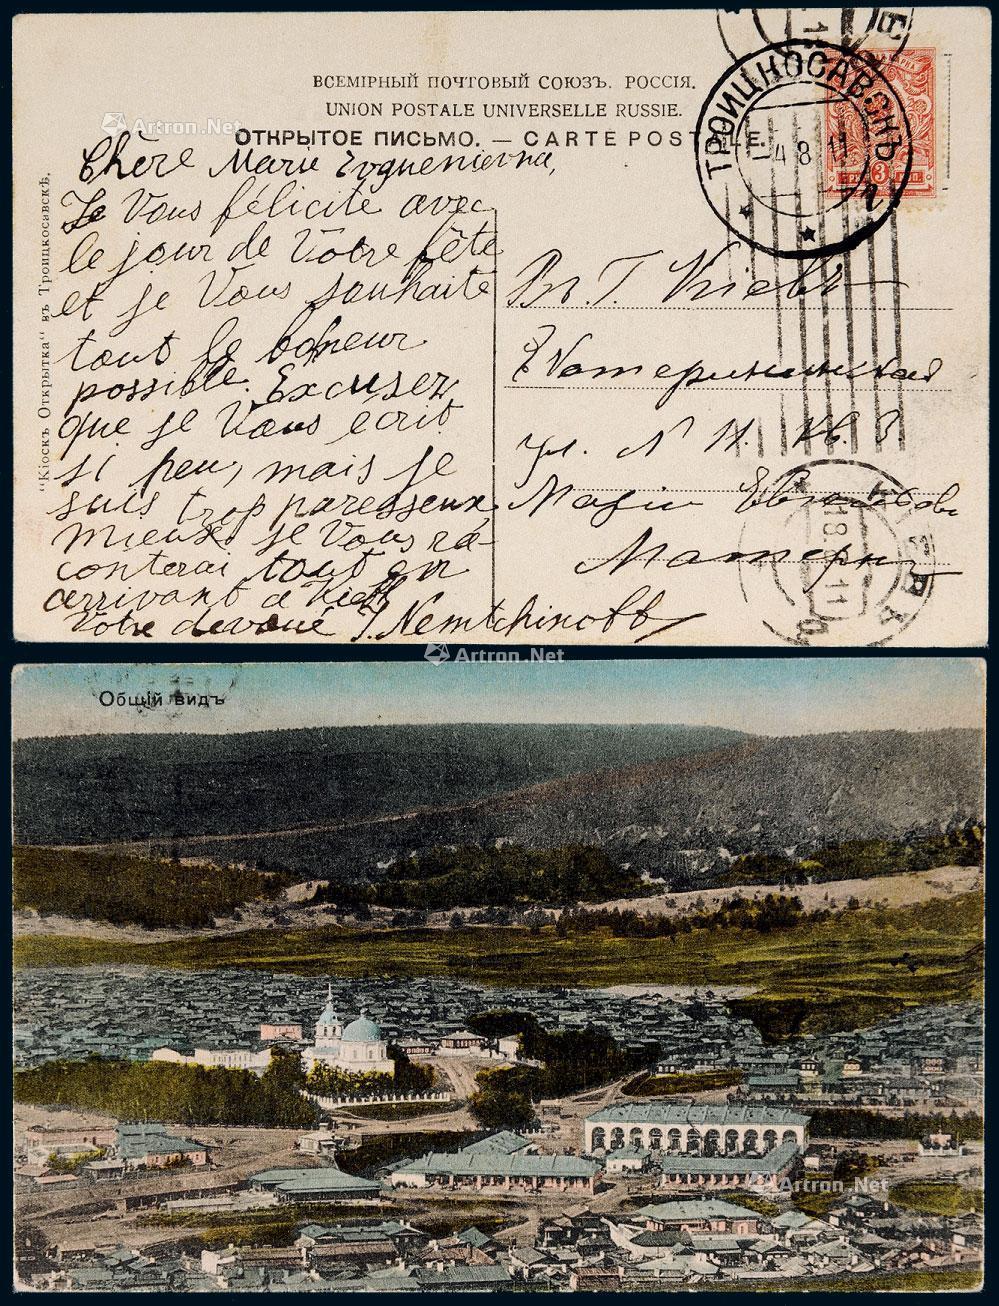 ВСЕМІРНЫЙ ПОЧТОВЫЙ СОЮЗЪ. РОССІЯ.
UNION POSTALE UNIVERSELLE RUSSIE.
ОТКРЫТОЕ ПИСЬМО. — CARTE POSTALE.
ТРОИЦКОСАВСКЪ
4 8 11
"Кіоскъ Открытка" въ Троицкосавскѣ.
Chère Marie Evguenievna,
Je Vous félicite avec
le jour de Votre fête
et je Vous souhaite
tout le bonheur
possible. Excusez
que je Vous ecrit
si peu, mais je
suis trop paresseux
mieux je Vous ra-
conterai tout en
arrivant à Kieff
Votre devoué J. Nemtchinoff
Въ Г. Кіевъ
Екатерининская
ул. N 11. кв. 3.
Маріи Евгеніевнѣ
КІЕВЪ
Общій видъ
Artron.Net
Artron.Net
Artron.Net
Artron.Net
Artron.Net